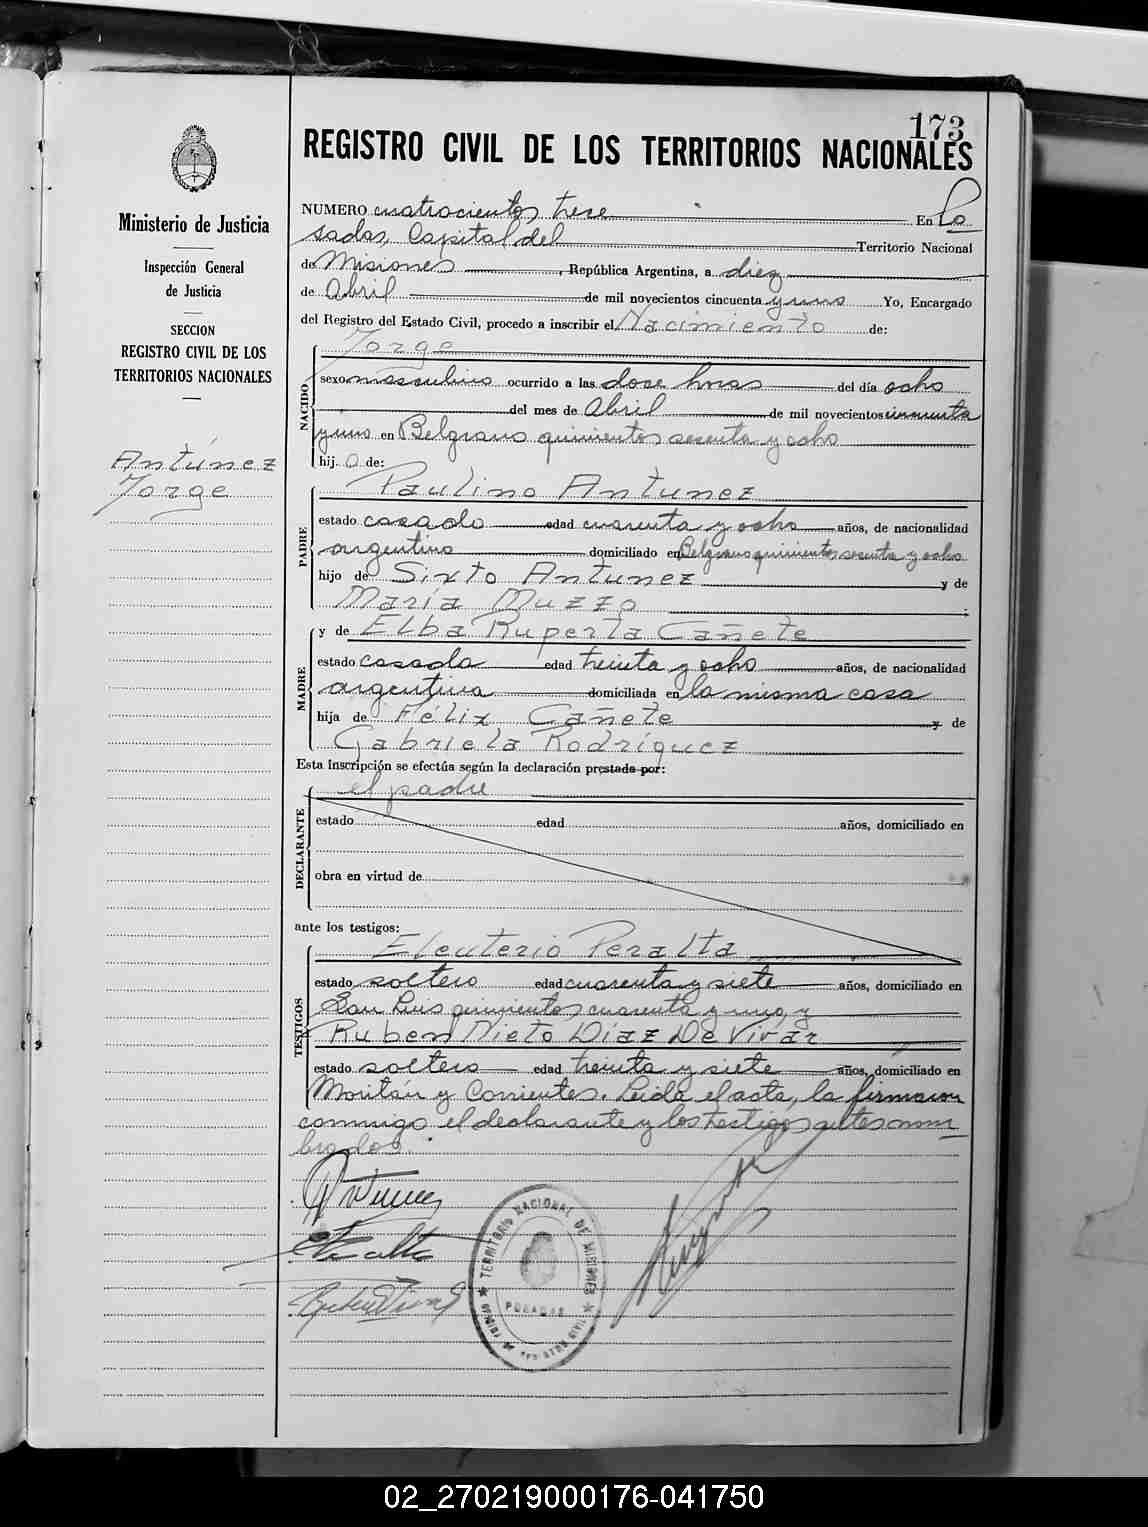 173
REGISTRO CIVIL DE LOS TERRITORIOS NACIONALES
Ministerio de Justicia
Inspección General
de Justicia
SECCION
REGISTRO CIVIL DE LOS
TERRITORIOS NACIONALES
Antúnez
Jorge
NUMERO cuatrocientos trece En Po
sadas, Capital del Territorio Nacional
de Misiones, República Argentina, a diez
de Abril de mil novecientos cincuenta y uno Yo, Encargado
del Registro del Estado Civil, procedo a inscribir el Nacimiento de:
Jorge
NACIDO
sexo masculino ocurrido a las doce horas del día ocho
del mes de Abril de mil novecientos cincuenta
y uno en Belgrano quinientos sesenta y ocho
hij. o de:
Paulino Antunez
PADRE
estado casado edad cuarenta y ocho años, de nacionalidad
argentino domiciliado en Belgrano quinientos sesenta y ocho
hijo de Sixto Antunez y de
María Muzzo ;
y de Elba Ruperta Cañete
MADRE
estado casada edad treinta y ocho años, de nacionalidad
argentina domiciliada en la misma casa
hija de Félix Cañete y de
Gabriela Rodríguez
Esta inscripción se efectúa según la declaración prestada por:
el padre
DECLARANTE
estado edad años, domiciliado en
obra en virtud de
ante los testigos:
Eleuterio Peralta
TESTIGOS
estado soltero edad cuarenta y siete años, domiciliado en
San Luis quinientos cuarenta y uno, y
Ruben Nieto Díaz De Vivar
estado soltero edad treinta y siete años, domiciliado en
Moritán y Corrientes. Leída el acta, la firmaron
conmigo el declarante y los testigos antes nom
brados.
TERRITORIO NACIONAL DE MISIONES
POSADAS
REGISTRO CIVIL
02_270219000176-041750